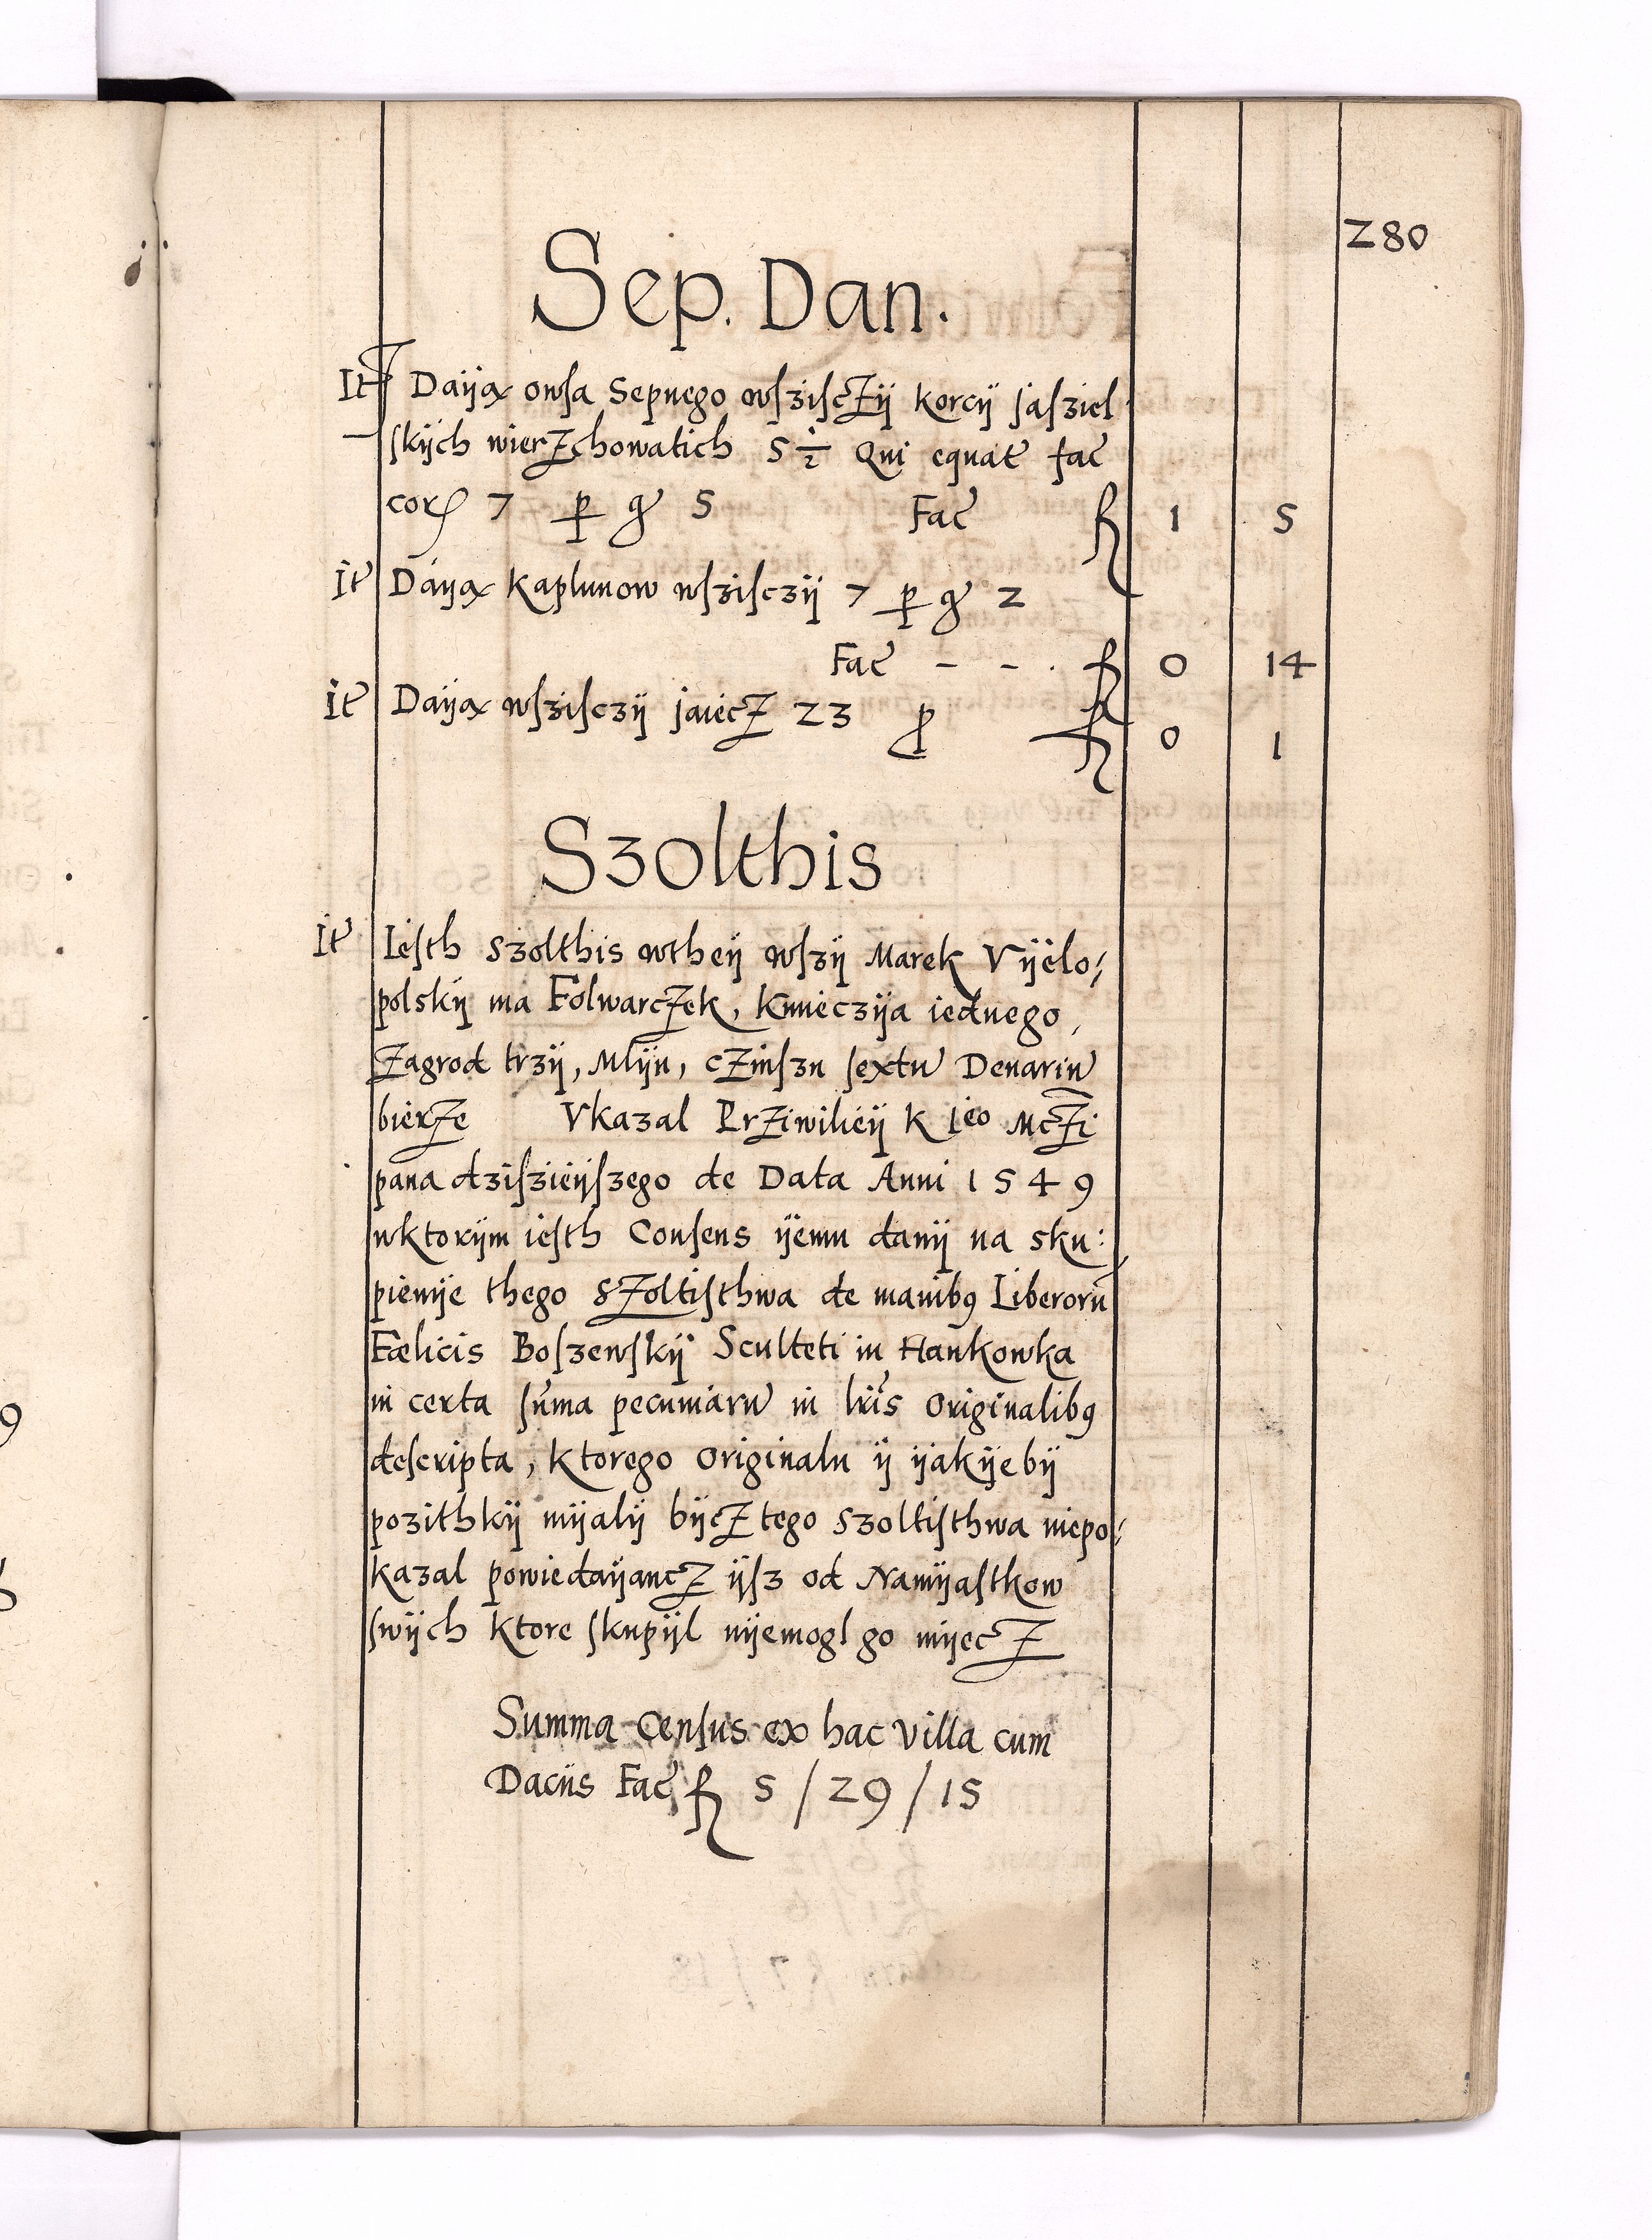 280
Sep. Dan.
It Dayą owsa Sepnego wszisczÿ korcÿ jasziel
skÿch wierzchowatich 5 ½ Qui equat fac
cor 7 p gr 5 Fac fl 1 5
It Dayą kaplunow wszisczÿ 7 p gr 2
Fac - - . fl 0 14
It Dayą wszisczÿ jaiecz 23 p fl 0 1
Szolthis
It Iesth szolthis wtheÿ wszÿ Marek Vÿelo⸗
polskÿ ma Folwarczek, kmieczÿa iednego,
Zagrod trzÿ, Mlÿn, czinszu sextū Denariū
bierze Vkazal Prziwilieÿ K Ieo Mczi
pana dziszieÿszego de Data Anni 1549
wktorÿm iesth Consens ÿemu danÿ na sku:
pienÿe thego szoltisthwa de manibꝯ Liberorū
Fœlicis Boszewskÿ Sculteti in Hankowka
in certa sūma pecuniarū in lr̄is Originalibꝯ
descripta, ktorego Originalu ÿ ÿakÿebÿ
pozithkÿ mÿalÿ bÿcz tego szoltisthwa niepo⸗
kazal powiedaÿancz ÿsz od Namÿastkow
swÿch ktore skupÿl nÿemogl go mÿecz
Summa Census ex hac villa cum
Daciis Fac fl 5 / 29 / 15